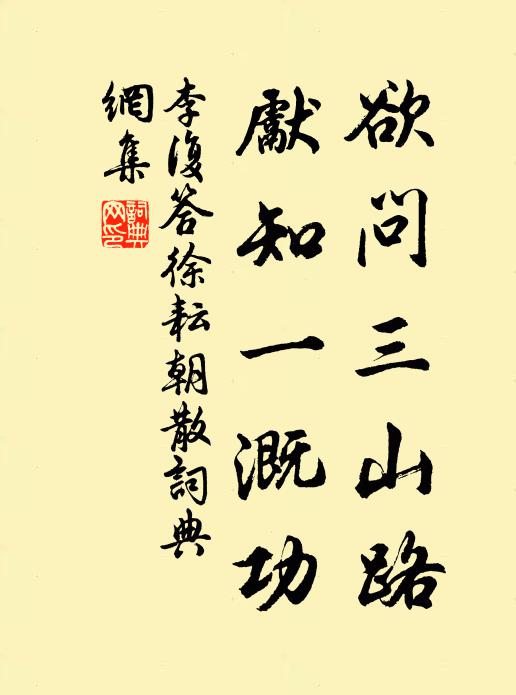 欲問三山路
獻知一溉功
李復答徐耘朝散詞典
網集
詞典
网印